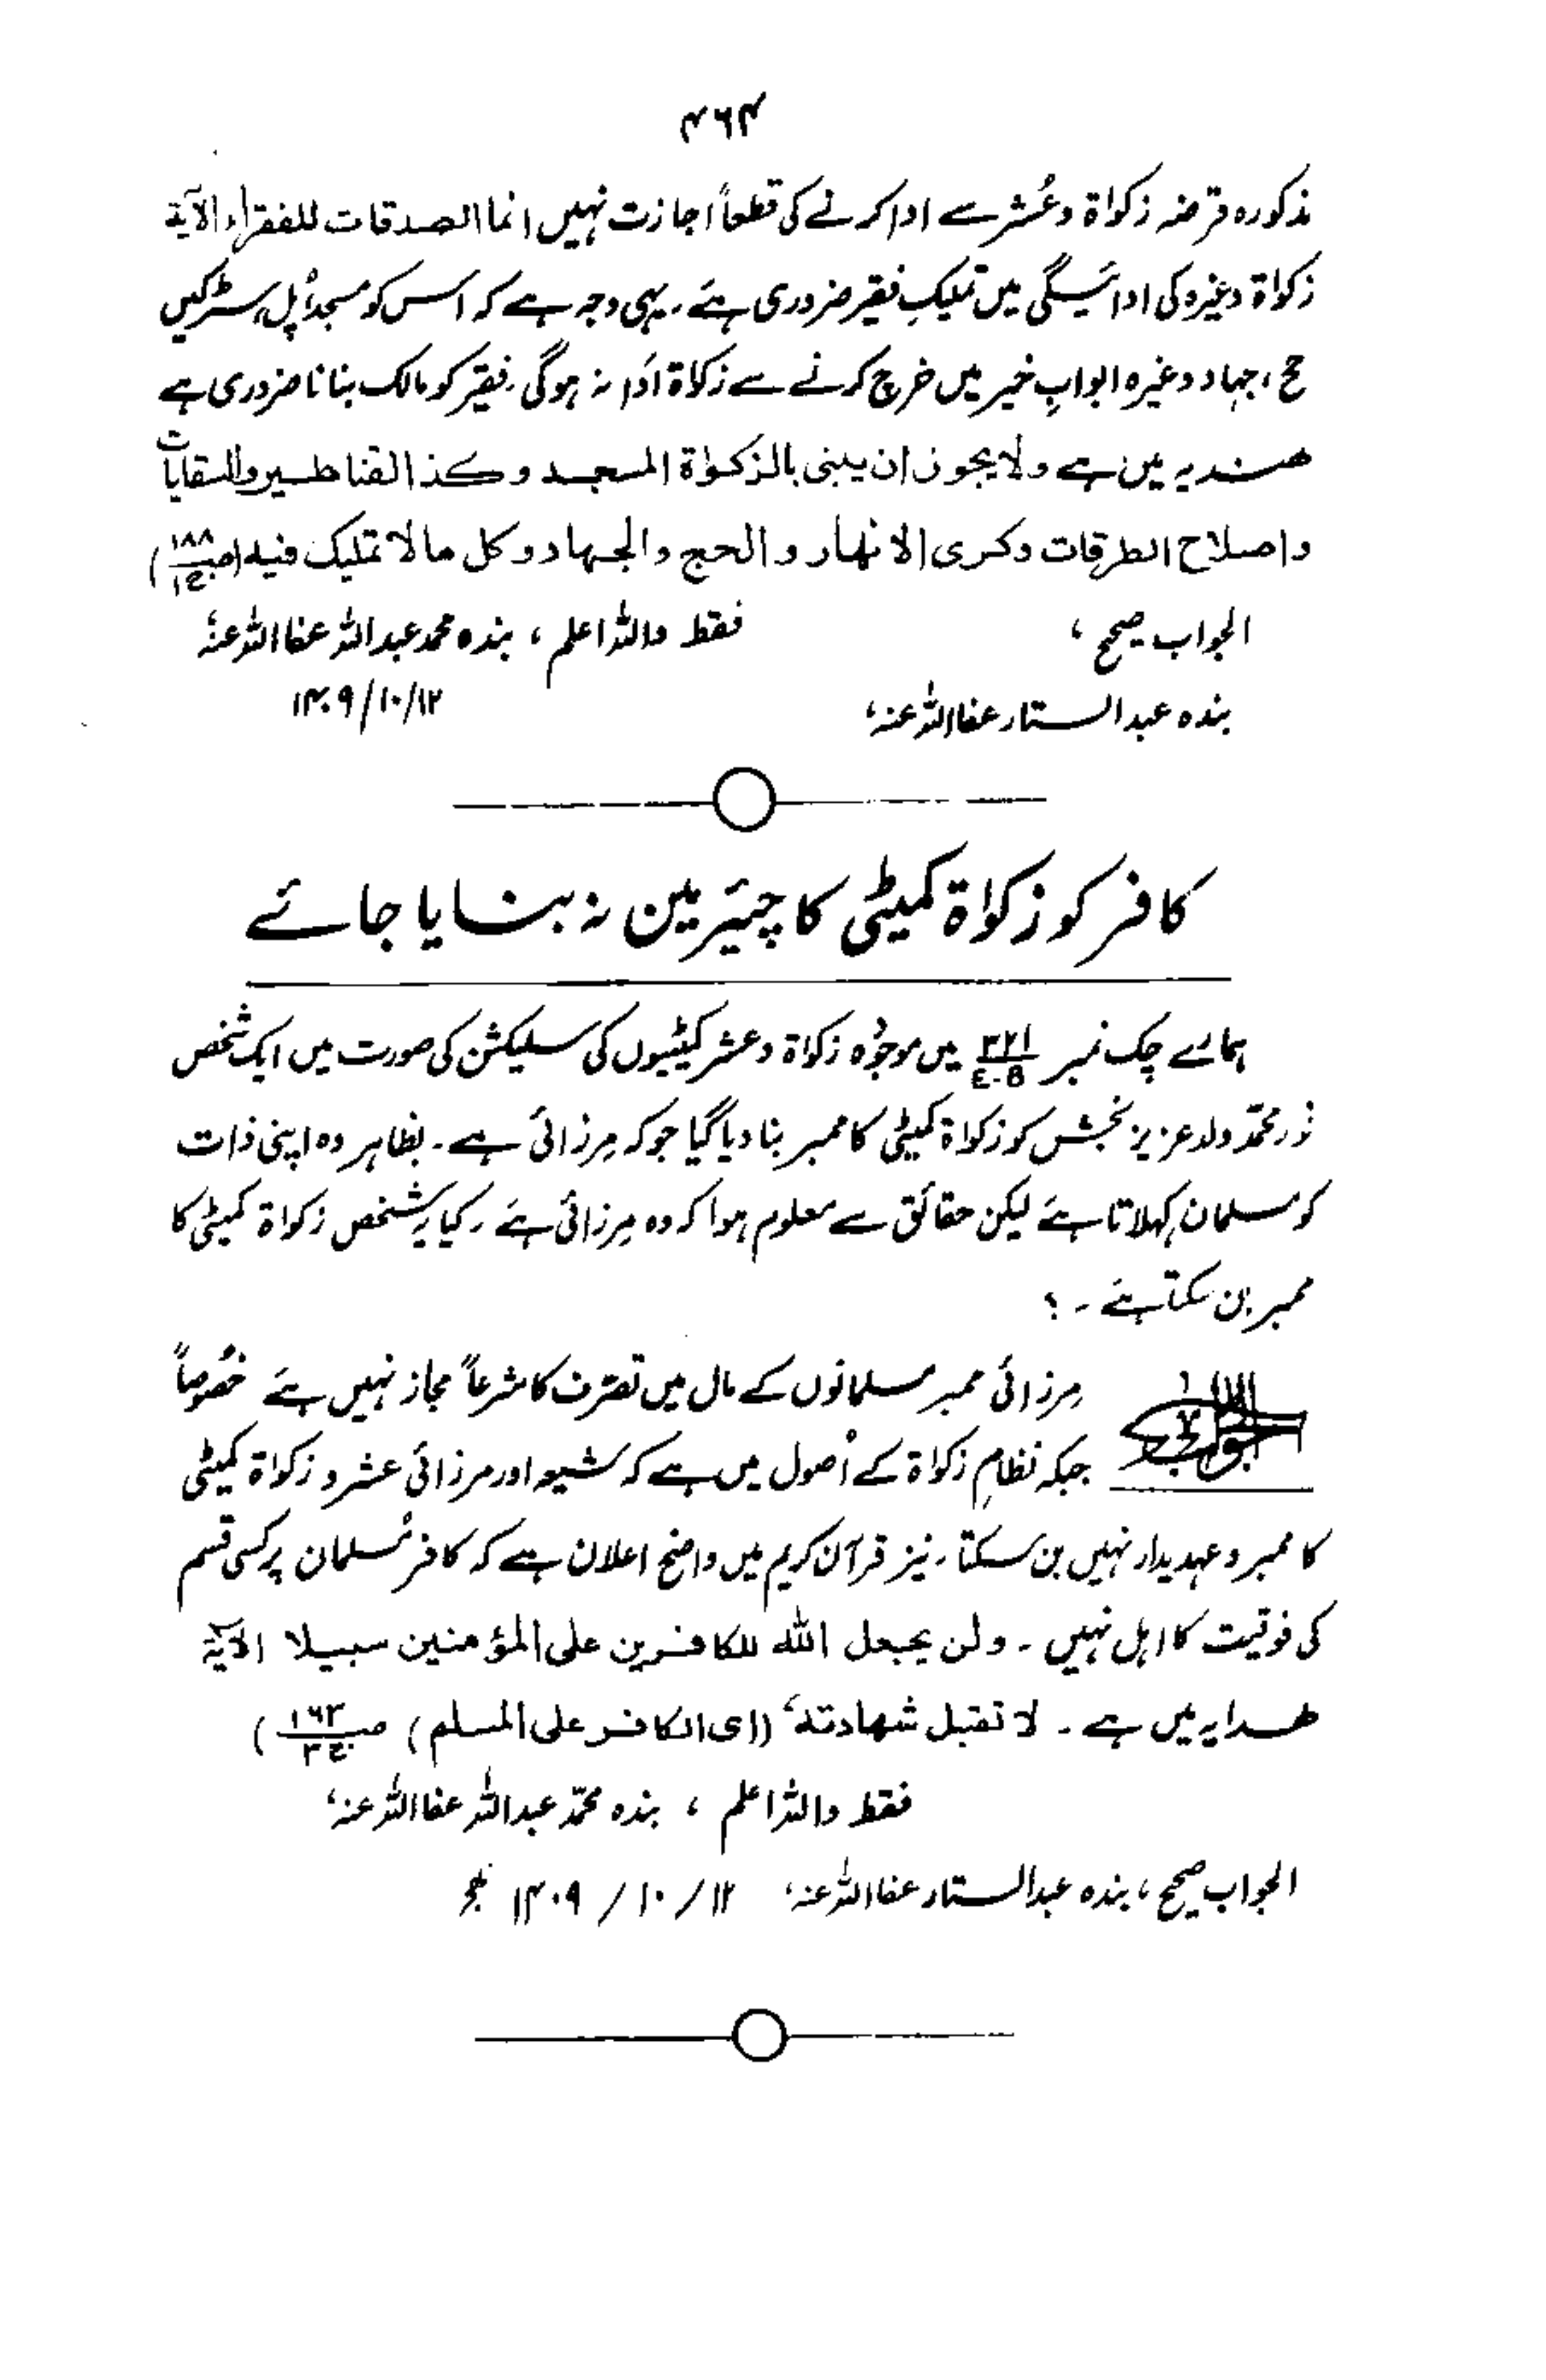 ۴۶۴
مذکورہ قرضہ زکواۃ وعُشر سے ادا کرنے کی قطعاً اجازت نہیں انما الصدقات للفقراء الآیۃ
زکواۃ وغیرہ کی ادائیگی میں تملیکِ فقیر ضروری ہے۔ یہی وجہ ہے کہ اس کو مسجد، پُل، سڑکیں
حج، جہاد وغیرہ ابوابِ خیر میں خرچ کرنے سے زکاۃ ادا نہ ہوگی۔ فقیر کو مالک بنانا ضروری ہے
ھندیہ میں ہے ولا یجوز ان یبنی بالزکواۃ المسجد وکذا القناطیر والسقایات
واصلاح الطرقات وکری الانہار والحج والجہاد وکل مالا تملیک فیہ (ص۱۸۸ ج۱)
الجواب صحیح، فقط واللہ اعلم، بندہ محمد عبداللہ عفا اللہ عنہ
بندہ عبدالستار عفا اللہ عنہ، ۱۲/۱۰/۱۴۰۹
کافر کو زکواۃ کمیٹی کا چیئرمین نہ بنایا جائے
ہمارے چک نمبر میں موجودہ زکواۃ وعشر کمیٹیوں کی سلیکشن کی صورت میں ایک شخص
نور محمد ولد عزیز بخش کو زکواۃ کمیٹی کا ممبر بنا دیا گیا جو کہ مرزائی ہے۔ بظاہر وہ اپنی ذات
کو مسلمان کہلاتا ہے لیکن حقائق سے معلوم ہوا کہ وہ مرزائی ہے۔ کیا یہ شخص زکواۃ کمیٹی کا
ممبر بن سکتا ہے۔؟
الجواب مرزائی ممبر مسلمانوں کے مال میں تصرف کا شرعاً مجاز نہیں ہے خصُوصاً
جبکہ نظامِ زکواۃ کے اُصول میں ہے کہ شیعہ اور مرزائی عشر و زکواۃ کمیٹی
کا ممبر و عہدیدار نہیں بن سکتا۔ نیز قرآن کریم میں واضح اعلان ہے کہ کافر مُسلمان پر کسی قسم
کی فوقیت کا اہل نہیں۔ ولن یجعل اللہ للکافرین علی المؤمنین سبیلا الآیۃ
ھدایہ میں ہے۔ لا تقبل شھادتہ، (ای الکافر علی المسلم) ص۱۶۳ ج۳)
فقط واللہ اعلم، بندہ محمد عبداللہ عفا اللہ عنہ،
الجواب صحیح، بندہ عبدالستار عفا اللہ عنہ، ۱۲/۱۰/۱۴۰۹ ھج